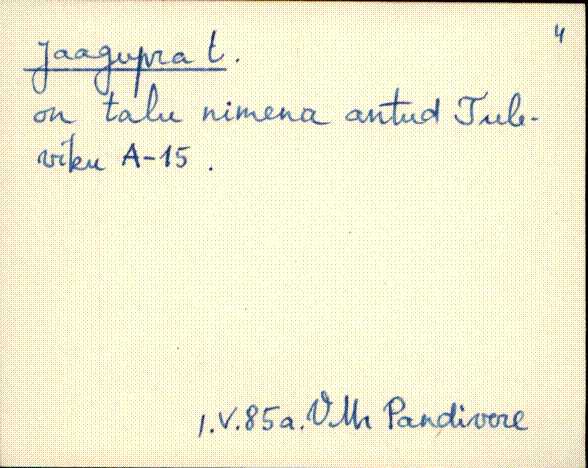 4
Jaagupra t.
on talu nimena antud Tule-
viku A-15.
1.V.85a. V.Mr Pandivere